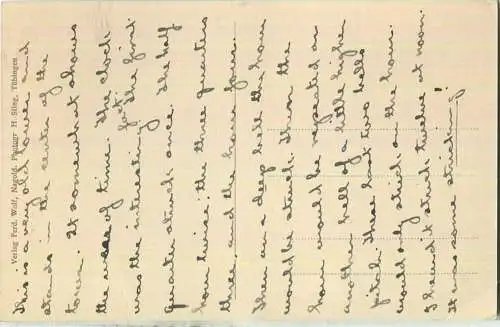 This is a very old tower and
stands in the center of the
town. It somewhat shows
the uses of time. The clock
was the interesting fat. The first
quarter struck once. The half
hour twice; the three quarters
three, and the hour four.
Then on a deep bell the hour
would be struck. Then the
hour would be repeated on
another bell of a little higher
pitch. These last two bells
would only strike on the hour.
I heard it strike twelve at noon.
It was some striking.
Verlag Ferd. Wolf, Nagold. Photogr H. Sting, Tübingen